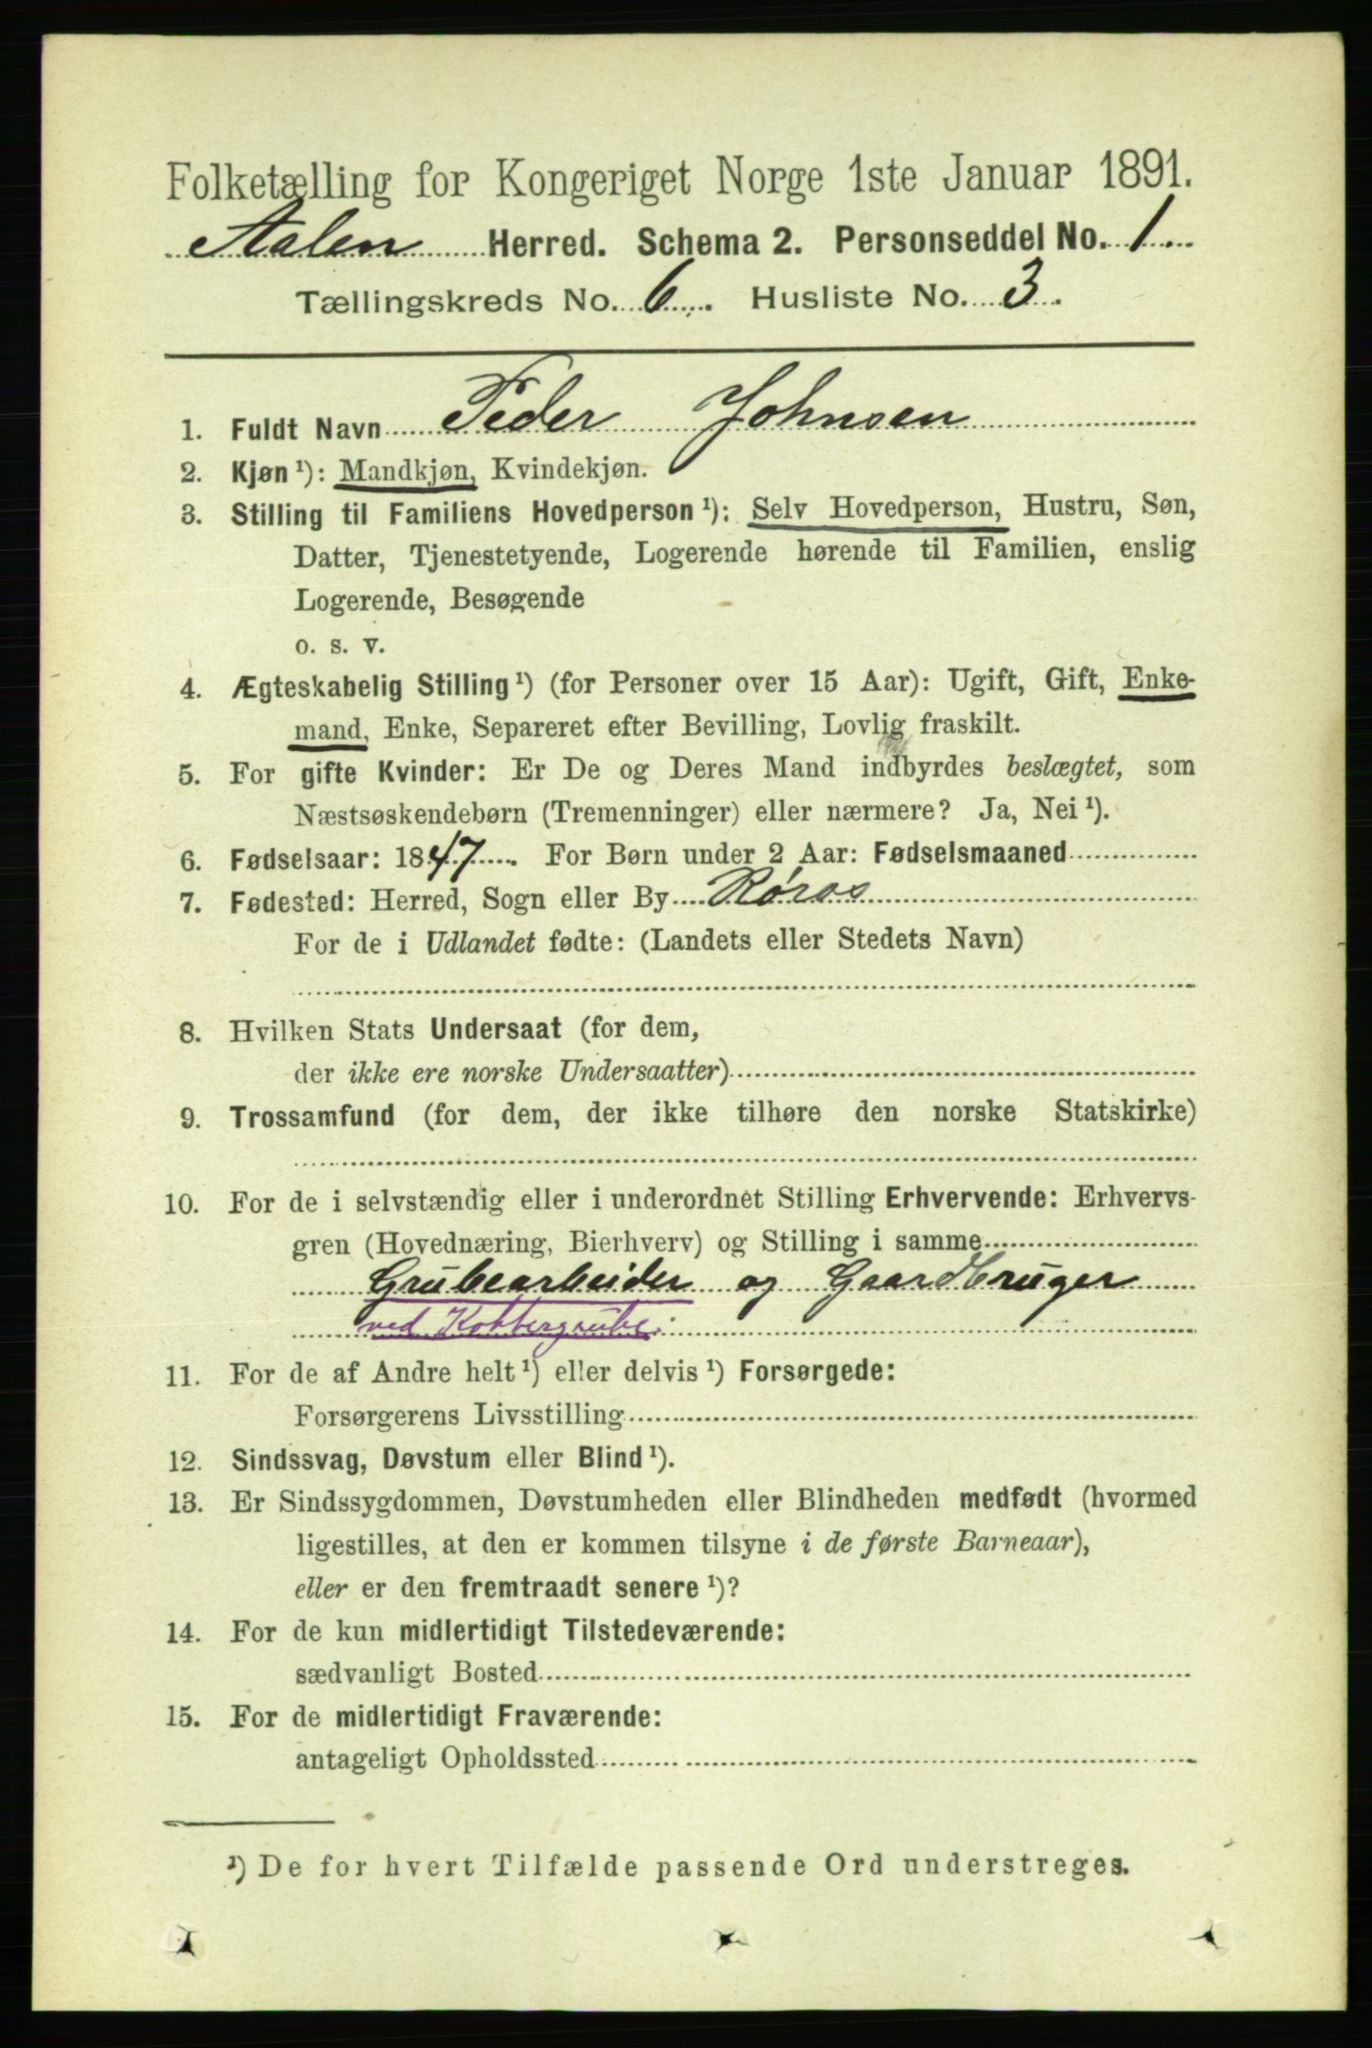 Folketælling for Kongeriget Norge 1ste Januar 1891.
Aalen Herred. Schema 2. Personseddel No. 1.
Tællingskreds No. 6. Husliste No. 3.
1. Fuldt Navn Peder Johnsen
2. Kjøn ¹): Mandkjøn, Kvindekjøn.
3. Stilling til Familiens Hovedperson ¹): Selv Hovedperson, Hustru, Søn,
Datter, Tjenestetyende, Logerende hørende til Familien, enslig
Logerende, Besøgende
o. s. v.
4. Ægteskabelig Stilling ¹) (for Personer over 15 Aar): Ugift, Gift, Enke-
mand, Enke, Separeret efter Bevilling, Lovlig fraskilt.
5. For gifte Kvinder: Er De og Deres Mand indbyrdes beslægtet, som
Næstsøskendebørn (Tremenninger) eller nærmere? Ja, Nei ¹).
6. Fødselsaar: 1847. For Børn under 2 Aar: Fødselsmaaned
7. Fødested: Herred, Sogn eller By Røros
For de i Udlandet fødte: (Landets eller Stedets Navn)
8. Hvilken Stats Undersaat (for dem,
der ikke ere norske Undersaatter)
9. Trossamfund (for dem, der ikke tilhøre den norske Statskirke)
10. For de i selvstændig eller i underordnet Stilling Erhvervende: Erhvervs-
gren (Hovednæring, Bierhverv) og Stilling i samme
Grubearbeider og Gaardbruger
ved Kobbergrube
11. For de af Andre helt ¹) eller delvis ¹) Forsørgede:
Forsørgerens Livsstilling
12. Sindssvag, Døvstum eller Blind ¹).
13. Er Sindssygdommen, Døvstumheden eller Blindheden medfødt (hvormed
ligestilles, at den er kommen tilsyne i de første Barneaar),
eller er den fremtraadt senere ¹)?
14. For de kun midlertidigt Tilstedeværende:
sædvanligt Bosted
15. For de midlertidigt Fraværende:
antageligt Opholdssted
¹) De for hvert Tilfælde passende Ord understreges.